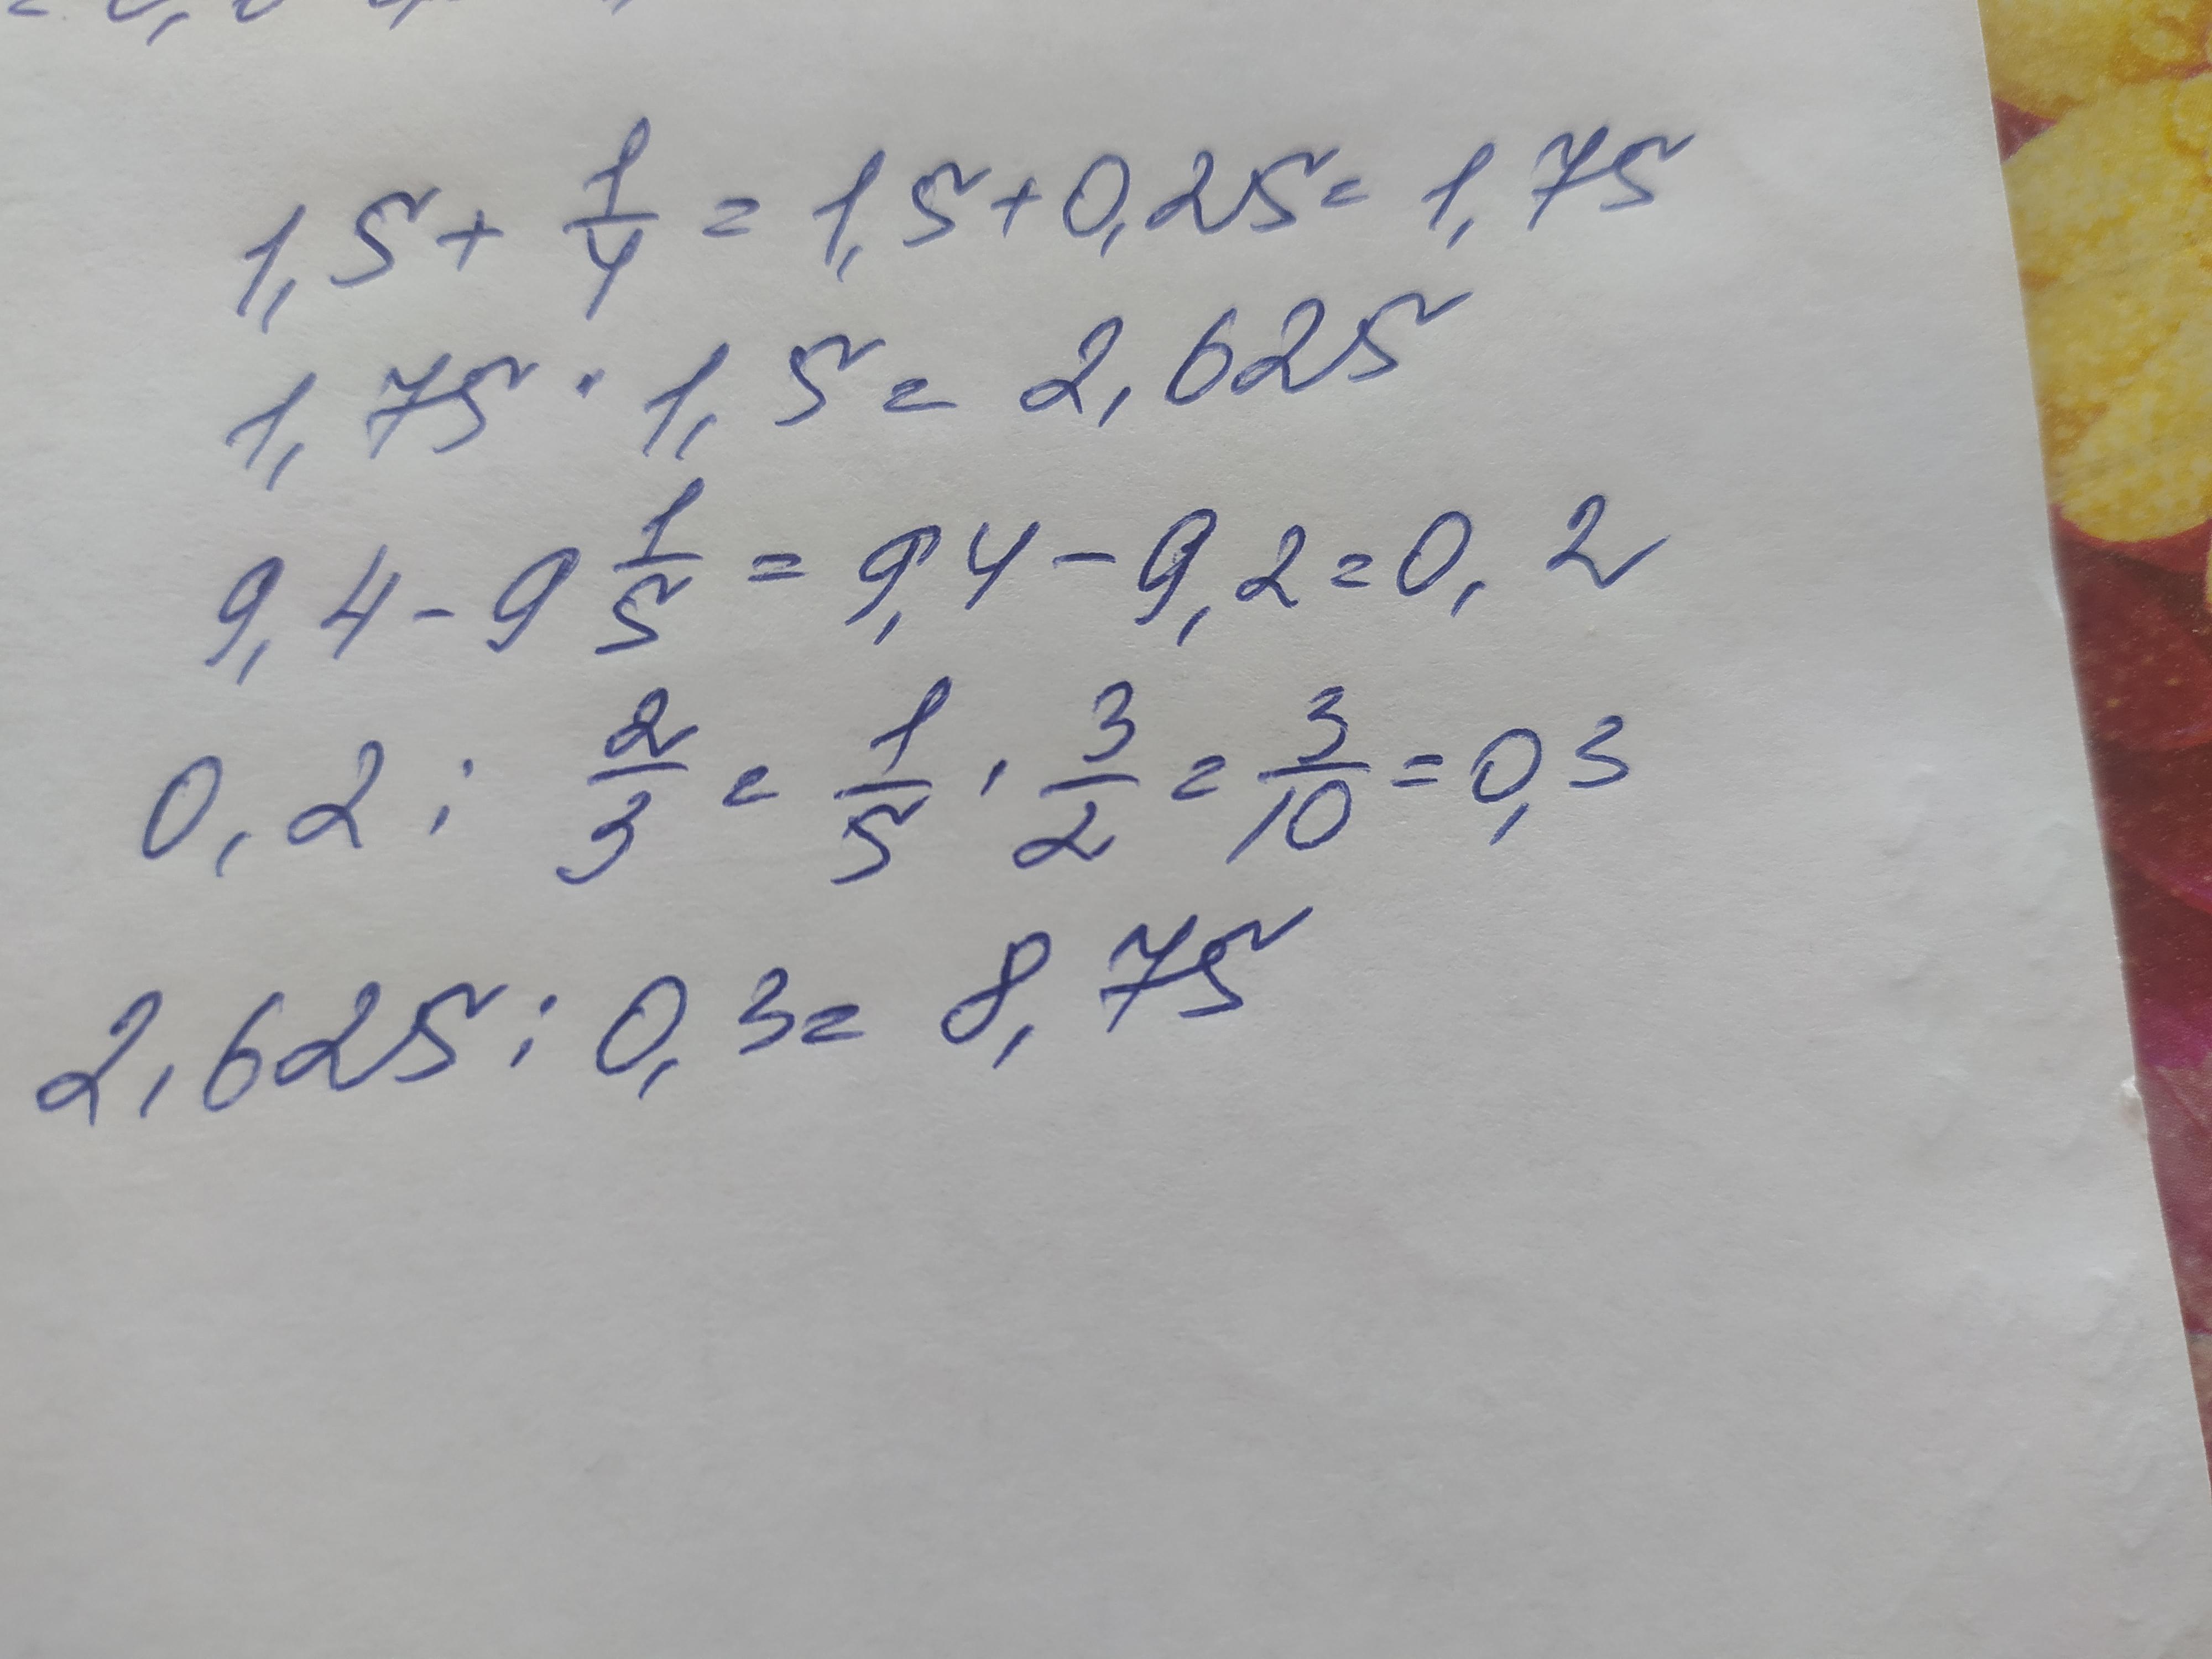 1,5 + 1/4 = 1,5 + 0,25 = 1,75
1,75 · 1,5 = 2,625
9,4 - 9 1/5 = 9,4 - 9,2 = 0,2
0,2 : 2/3 = 1/5 · 3/2 = 3/10 = 0,3
2,625 : 0,3 = 8,75